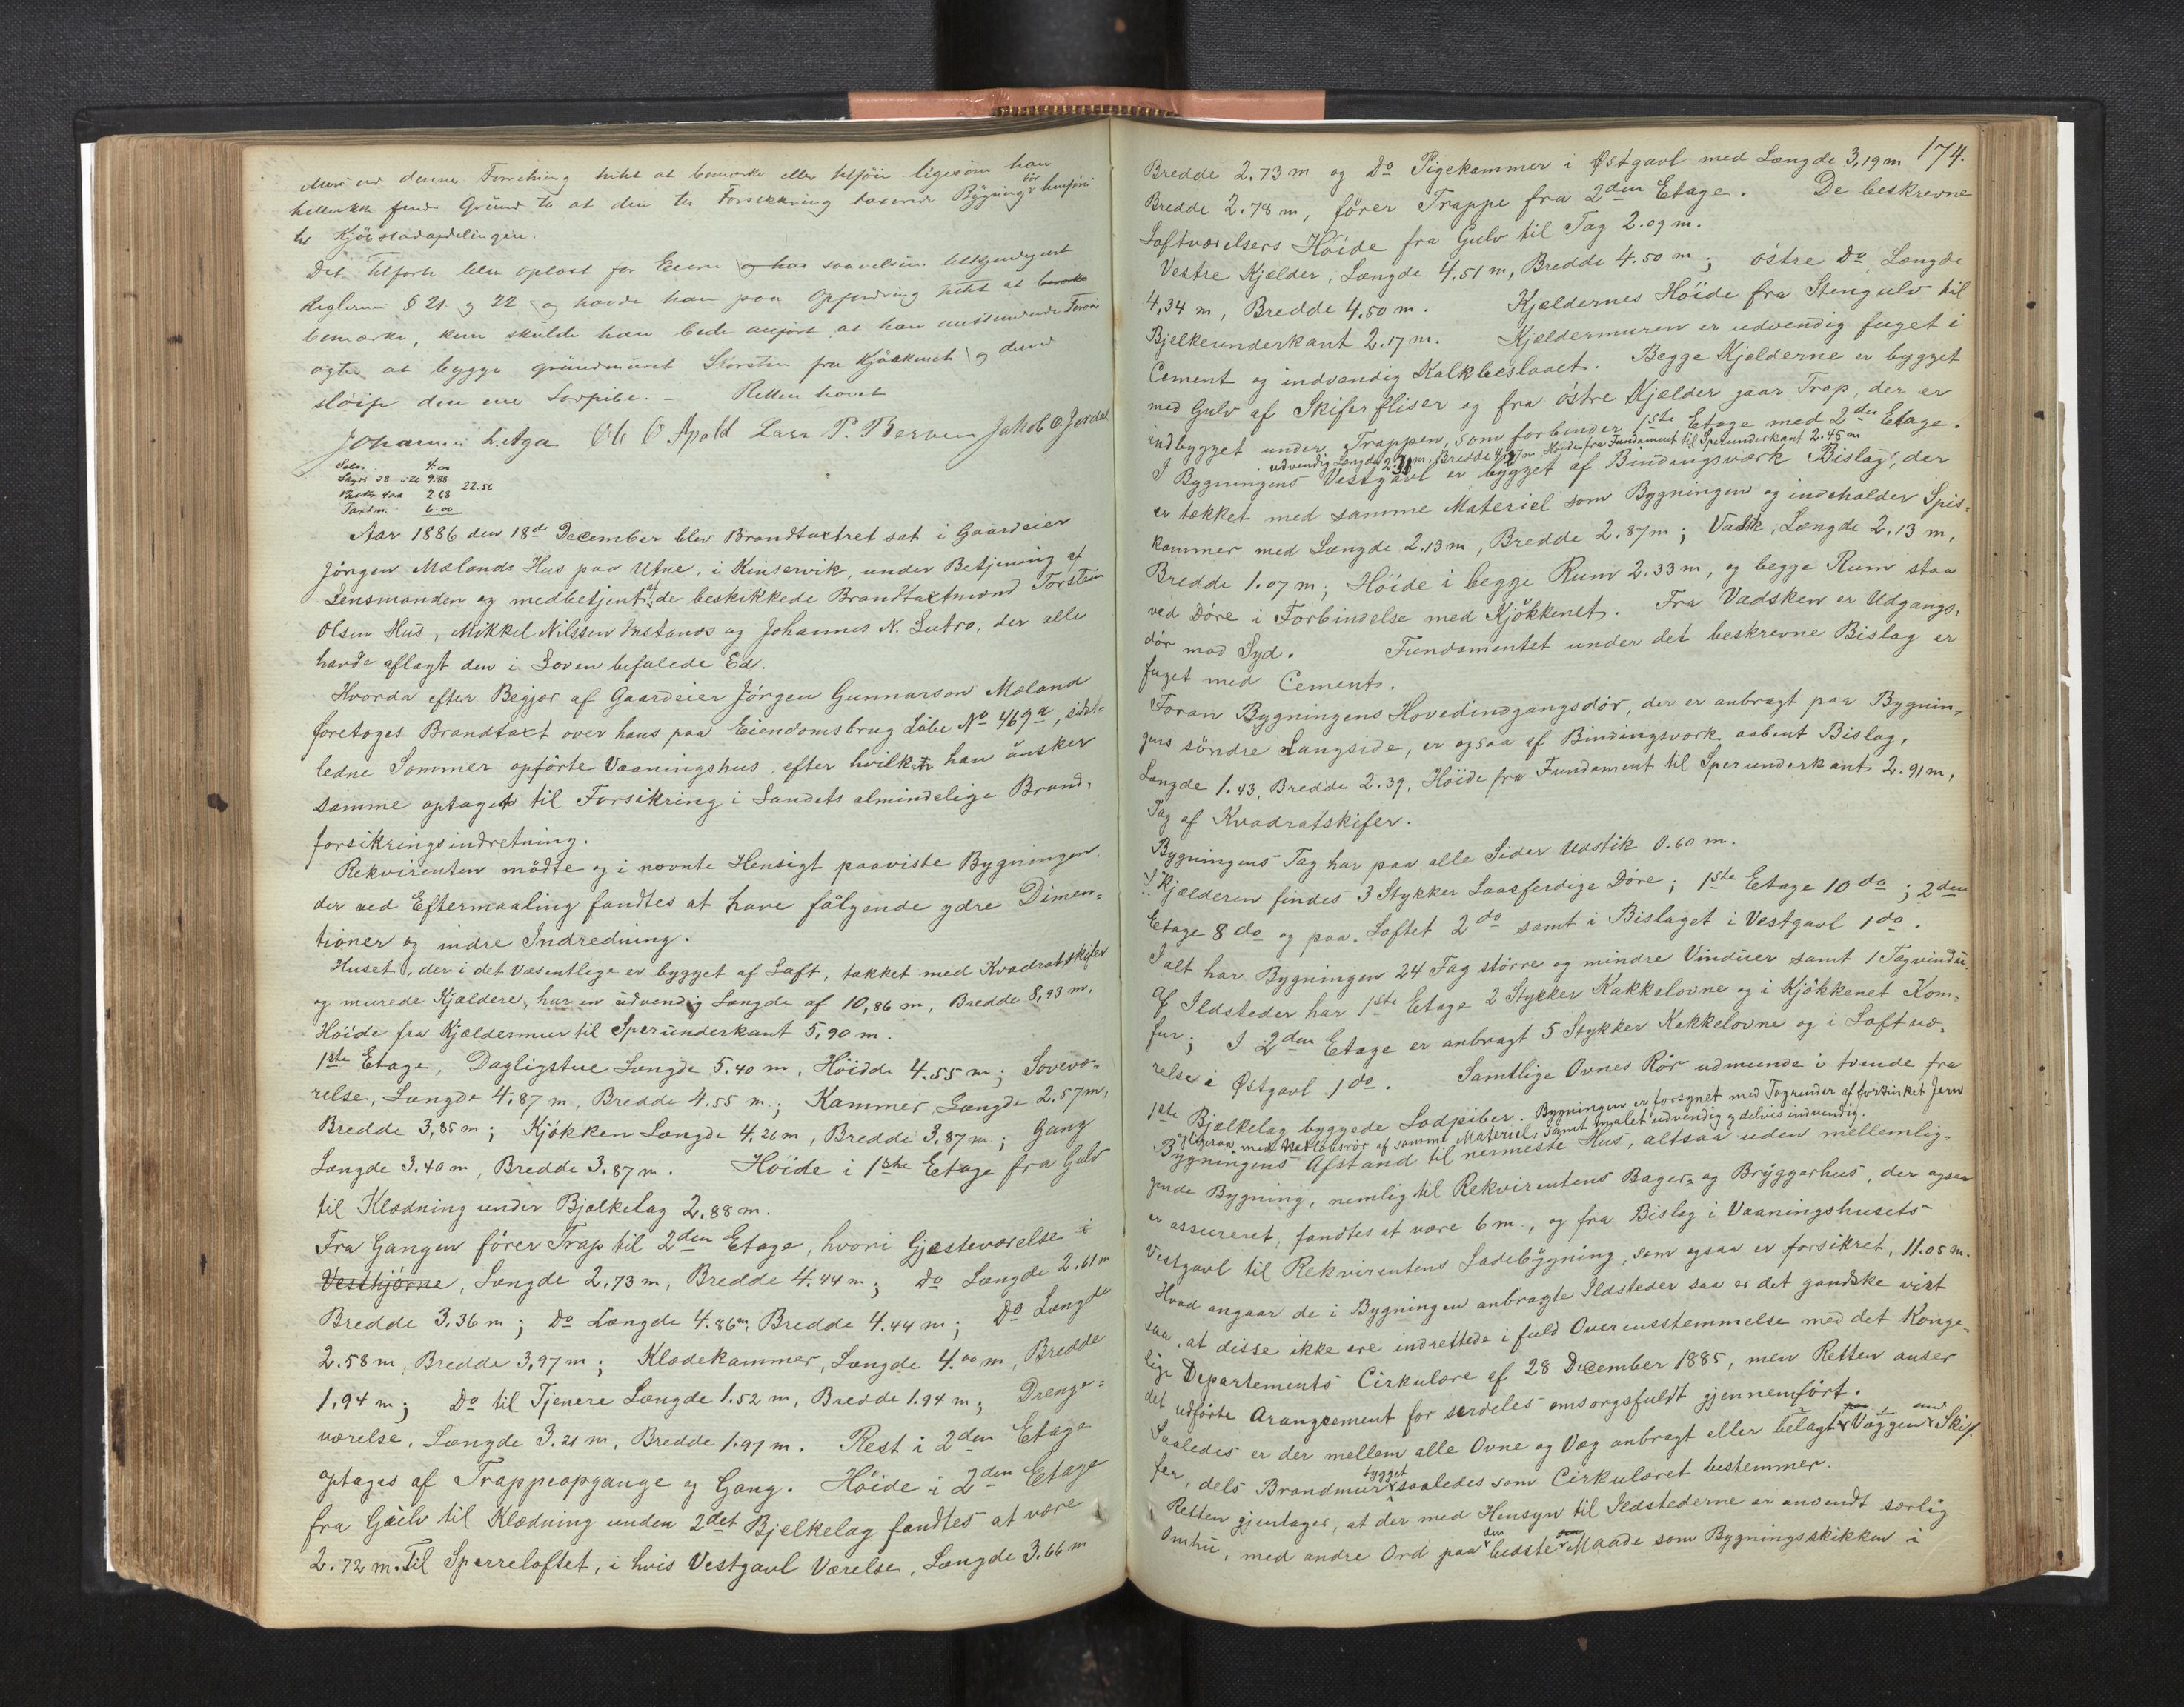 ved denne Forretning intet at bemærke eller tilføie ligesom han
heller ikke fandt Grund til at den til Forsikkring taxerede Bygning bør henføres
til Kjøbstadafdelingen.
Det tilførte blev oplæst for Eieren og han saavelsom bekjendtgjort
Reglerne § 21 og 22 og havde han paa Opfordring intet at
bemærke, kun skulde han bede anført at han
agter at bygge grundmuret Skorsten fra Kjøkkenet og derved
sløife den ene Lodpibe. - Retten hævet
Johannes L. Aga Ole O Apold Lars P. Berven Jakob O. Jordal
4.00
Skyds 38 9.88
2.68 22.56
Taxtm. 6.00
Aar 1886 den 18de December blev Brandtaxtret sat i Gaardeier
Jörgen Mælands Hus paa Utne, i Kinservik, under Betjening af
Lensmanden og medbetjent af de beskikkede Brandtaxtmænd Torsten
Olsen Hus, Mikkel Nilssen Instanæs og Johannes N. Lutro, der alle
havde aflagt den i Loven befalede Ed.
Hvorda efter Begjær af Gaardeier Jörgen Gunnarson Mæland
foretoges Brandtaxt over hans paa Eiendomsbrug Löbe No 469a, sidst-
ledne Sommer opförte Vaaningshus, efter hvilken han önsker
samme optaget til Forsikring i Landets almindelige Brand-
forsikringsindretning.
Rekvirenten mödte og i nævnte Hensigt paaviste Bygningen
der ved Eftermaaling fandtes at have fölgende ydre Dimen-
tioner og indre Indredning.
Huset, der i det væsentlige er bygget af Laft, tækket med Kvadratskifer
og murede Kjældere, har en udvendig Længde af 10,86 m, Bredde 8,93 m,
Höide fra Kjældermur til Sperunderkant 5,90 m.
1ste Etage, Dagligstue Længde 5.40 m, Höidde 4.55 m; Sovevæ-
relse, Længde 4,87 m, Bredde 4.55 m; Kammer, Længde 2,57 m,
Bredde 3,85 m; Kjökken Længde 4,26 m, Bredde 3,87 m; Gang
Længde 3.40 m, Bredde 3.87 m. Höide i 1ste Etage fra Gulv
til Klædning under Bjælkelag 2,88 m.
Fra Gangen förer Trap til 2den Etage, hvori Gjesteværelse i
Vesthjörne, Længde 2,73 m, Bredde 4.44 m; Do Længde 2.61 m
Bredde 3.36 m; Do Længde 4.86 m, Bredde 4.44 m; Do Længde
2.58 m, Bredde 3,97 m; Klædekammer, Længde 4.00 m, Bredde
1,94 m; Do til Tjenere Længde 1.52 m, Bredde 1.94 m; Drenge-
værelse, Længde 3.21 m, Bredde 1.97 m. Rest i 2den Etage
optages af Trappeopgange og Gang. Höide i 2den Etage
fra Gulv til Klædning under 2det Bjelkelag fandtes at være
2.72 m. Til Sperreloftet, i hvis Vestgavl Værelse, Længde 3.66 m
174.
Bredde 2.73 m og Do Pigekammer i Østgavl med Længde 3,19 m
Bredde 2.78 m, förer Trappe fra 2den Etage. De beskrevne
Loftværelsers Höide fra Gulv til Tag 2.09 m.
Vestre Kjelder, Længde 4.51 m, Bredde 4.50 m; östre Do, Længde
4,34 m, Bredde 4.50 m. Kjældernes Höide fra Stengulv til
Bjelkeunderkant 2.17 m. Kjældermuren er udvendig fuget i
Cement og indvendig Kalkbeslaaet. Begge Kjælderne er bygget
med Gulv af Skiferfliser og fra östre Kjelder gaar Trap, der er
indbygget under Trappen, som forbinder 1ste Etage med 2den Etage.
udvendig Længde 2.31 m, Bredde 4.27 m Höide fra Fundament til Sperunderkant 2.45 m
I Bygningens Vestgavl er bygget af Bindingsværk Bislag, der
er tækket med samme Materiel som Bygningen og indeholder Spis-
kammer med Længde 2.13 m, Bredde 2.87 m; Vadsk, Længde 2.13 m,
Bredde 1.07 m; Höide i begge Rum 2.33 m, og begge Rum staa
ved Döre i Forbindelse med Kjökkenet. Fra Vadsken er Udgangs-
dör mod Syd. Fundamentet under det beskrevne Bislag er
fuget med Cement.
Foran Bygningens Hovedindgangsdör, der er anbragt paa Bygnin-
gens söndre Langside, er ogsaa af Bindingsværk aabent Bislag,
Længde 1.43, Bredde 2.39, Höide fra Fundament til Sperunderkant 2.91 m,
Tag af Kvadratskifer.
Bygningens Tag har paa alle Sider Udstik 0.60 m.
I Kjælderen findes 3 Stykker Laasferdige Döre; 1ste Etage 10 do; 2den
Etage 8 do og paa Loftet 2 do samt i Bislaget i Vestgavl 1 do.
I alt har Bygningen 24 Fag större og mindre Vinduer samt 1 Tagvindu.
Af Ildsteder har 1ste Etage 2 Stykker Kakkelovne og i Kjökkenet Kom-
fur; I 2den Etage er anbragt 5 Stykker Kakkelovne og i Loftvæ-
relse i Østgavl 1 do. Samtlige Ovnes Rör udmunde i tvende fra
1ste Bjælkelag byggede Lodpiber. Bygningen er forsynet med Tagrender af forzinket Jern
ligesaa med Nedlöbsrör af samme Materiel, samt malet udvendig og delvis indvendig.
Bygningens Afstand til nermeste Hus, altsaa uden mellemlig-
gende Bygning, nemlig til Rekvirentens Bager- og Bryggerhus, der ogsaa
er assureret, fandtes at være 6 m, og fra Bislag i Vaaningshusets
Vestgavl til Rekvirentens Ladebygning, som ogsaa er forsikret, 11.05 m.
Hvad angaar de i Bygningen anbragte Ildsteder saa er det gandske vist
saa, at disse ikke ere indrettede i fuld Overensstemmelse med det Konge-
lige Departements Cirkulære af 28 December 1885, men Retten anser
det udförte Arangement for serdeles omsorgsfuldt gjennemfört.
Saaledes er der mellem alle Ovne og Væg anbragt eller belagt Væggen med Ski-
fer, dels Brandmur bygget saaledes som Cirkulæret bestemmer.
Retten gjentager, at der med Hensyn til Ildstederne er anvendt særlig
Omhu, med andre Ord paa den bedste Maade som Bygningsskikken i